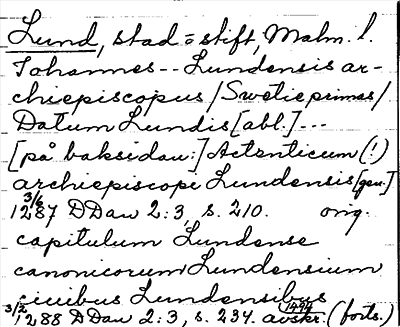 Lund, stad o stift, Malm. l.
Johannes -- Lundensis ar-
chiepiscopus /Swetie primas/
Datum Lundis [abl.] ---
[på baksidan:] Actenticum (!)
archiepiscopi Lundensis [gen.]
3/6 1287 DDan 2:3, s. 210. orig.
capitulum Lundense
canonicorum Lundensium
ciuibus Lundensibus
3/2 1288 DDan 2:3, s. 234. avskr. 1494 (forts.)